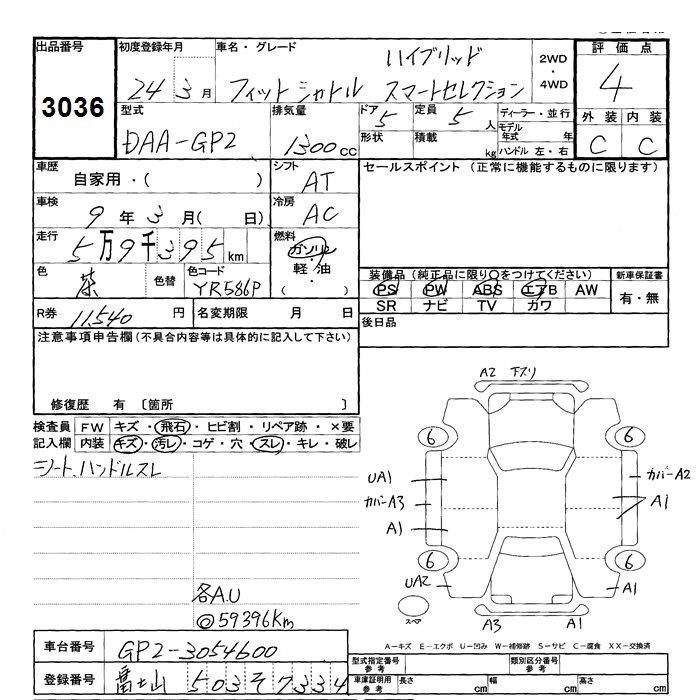 出品番号 初度登録年月 車名・グレード 評価点
ハイブリッド 2WD・4WD
3036 24 3月 フィットシャトル スマートセレクション 4
型式 排気量 ドア 5 定員 5人 ディーラー・並行 外装 内装
DAA-GP2 1300cc 形状 積載 kg モデル年式 年 C C
ハンドル 左・右
車歴 シフト セールスポイント (正常に機能するものに限ります)
自家用・( ) AT
車検 9年3月( 日) 冷房 AC
走行 5万9千395km 燃料 ガソリン・軽油・( )
色 茶 色替 色コード YR586P 装備品(純正品に限り○をつけてください) 新車保証書
PS PW ABS エアB AW 有・無
SR ナビ TV カワ
R券 11,540円 名変期限 月 日 後日品
注意事項申告欄(不具合内容等は具体的に記入して下さい)
修復歴 有 〔箇所 〕
検査員 FW キズ・飛石・ヒビ割・リペア跡・×要
記入欄 内装 キズ・汚レ・コゲ・穴・スレ・キレ・破レ
シート、ハンドルスレ
A2 下スリ
6 6
UA1 カバーA2
カバーA3 A1
A1
6 6
UA2 A1
A3 A1
各A.U
◎59396Km
A-キズ E-エクボ U-凹み W-補修跡 S-サビ C-腐食 XX-交換済
車台番号 GP2-3054600 型式指定番号 参考 類別区分番号 参考
登録番号 富士山 503 そ 7334 車庫証明用 参考 長さ cm 幅 cm 高さ cm